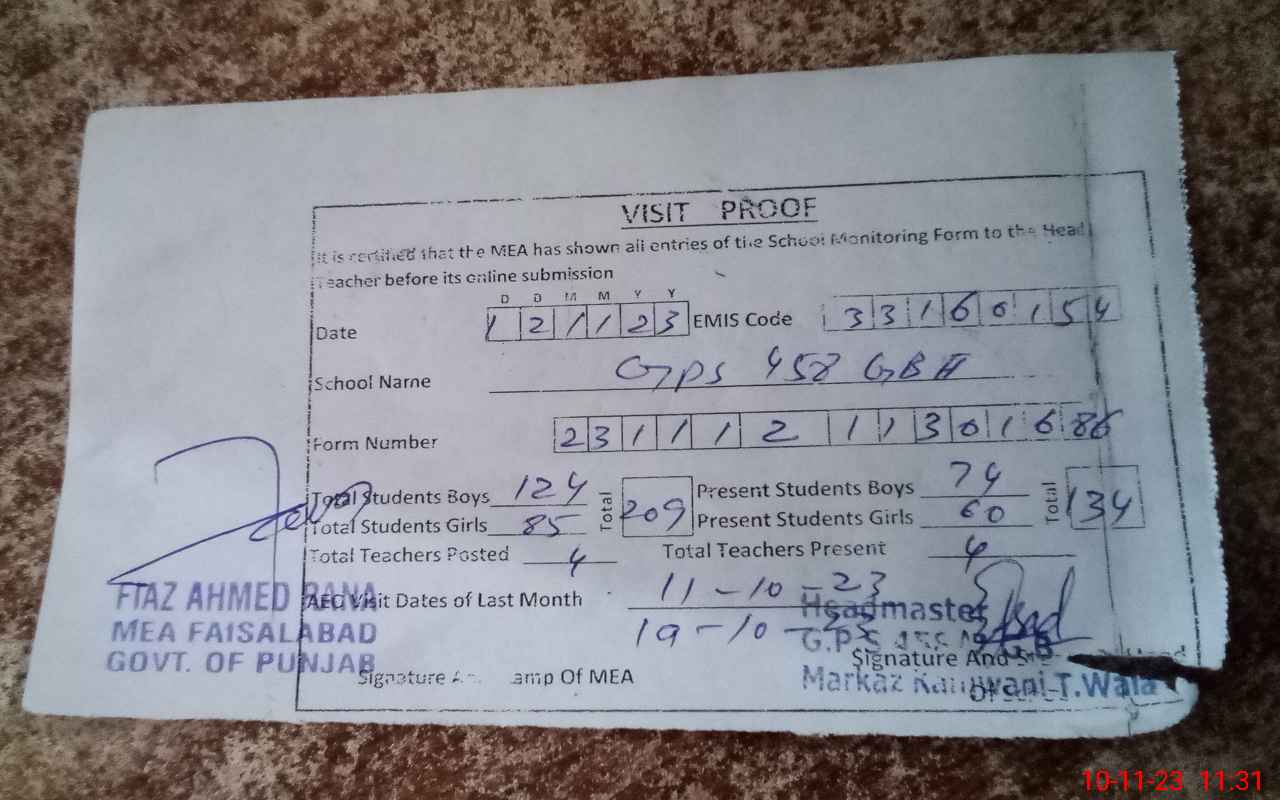 VISIT PROOF
It is certified that the MEA has shown all entries of the School Monitoring Form to the Head
Teacher before its online submission
D D M M Y Y
Date 1 2 1 1 2 3 EMIS Code 3 3 1 6 0 1 5 4
School Name GPS 458 GB
Form Number 2 3 1 1 1 2 1 1 3 0 1 6 86
Total Students Boys 124 Total 209 Present Students Boys 74 Total 134
Total Students Girls 85 Present Students Girls 60
Total Teachers Posted 4 Total Teachers Present 4
AEO Visit Dates of Last Month 11-10-23
19-10-23
Signature Of MEA Signature And
AHMED RANA
MEA FAISALABAD
GOVT. OF PUNJAB
Headmaster
G.P.S G.B
Markaz T.Wala
10-11-23 11.31